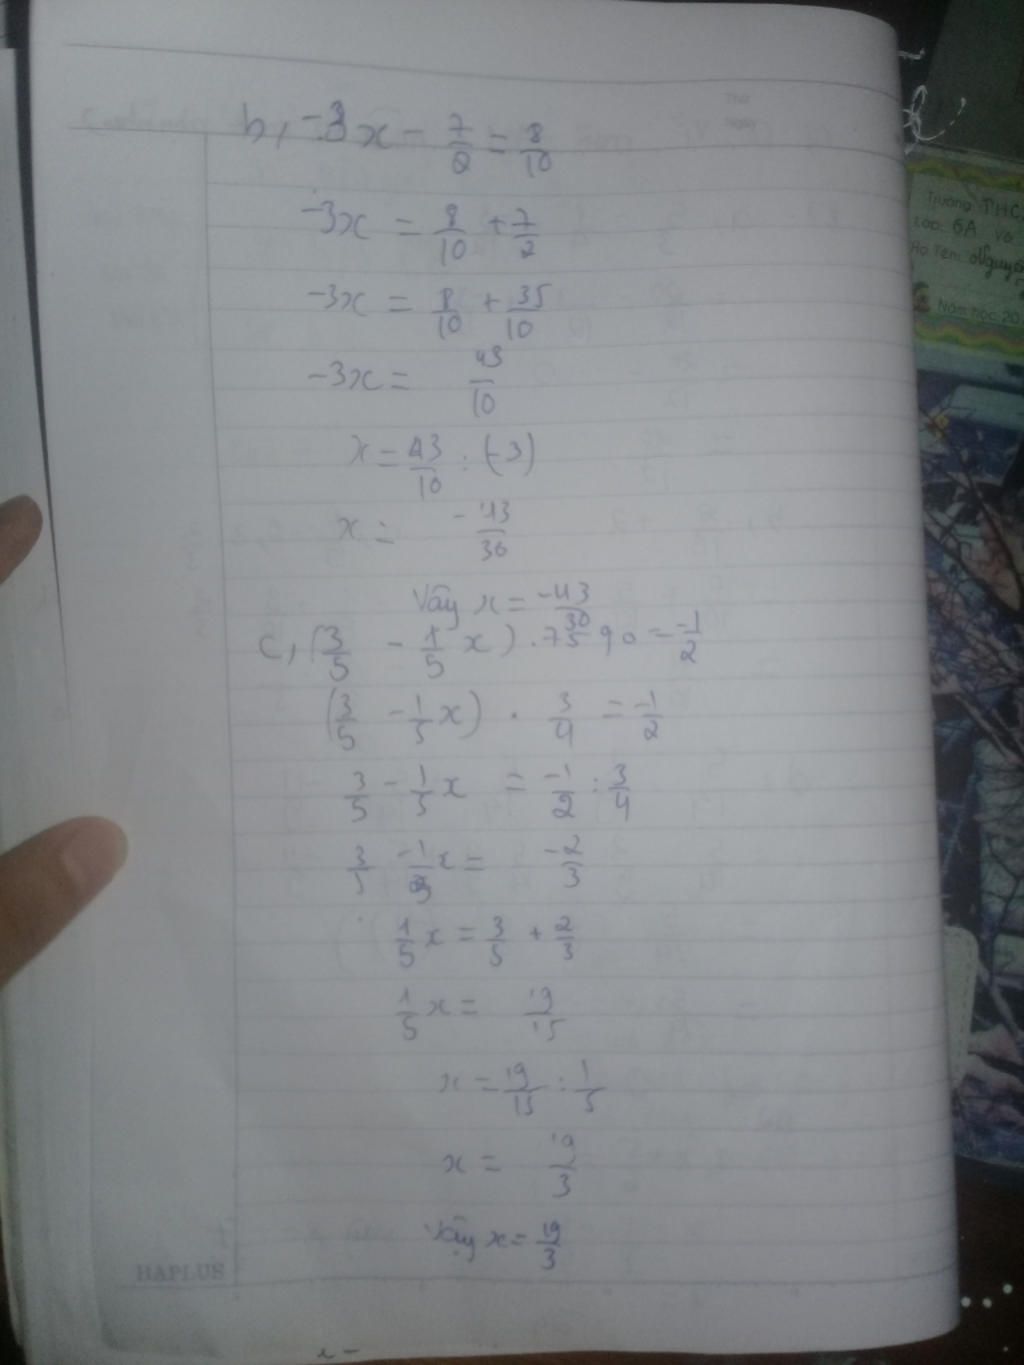 b, -3x - 7/2 = 8/10
-3x = 8/10 + 7/2
-3x = 8/10 + 35/10
-3x = 43/10
x = 43/10 : (-3)
x = -43/30
Vậy x = -43/30
c, (3/5 - 1/5 x) . 75% = -1/2
(3/5 - 1/5 x) . 3/4 = -1/2
3/5 - 1/5 x = -1/2 : 3/4
3/5 - 1/5 x = -2/3
1/5 x = 3/5 + 2/3
1/5 x = 19/15
x = 19/15 : 1/5
x = 19/3
Vậy x = 19/3
HAPLUS
Trường THC
Lớp: 6A Vở
Họ Tên: Nguyễ
Năm học: 20